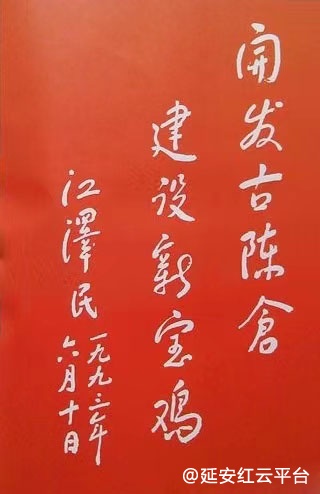 开发古陈仓
建设新宝鸡
江泽民
一九九三年
六月十日
@延安红云平台